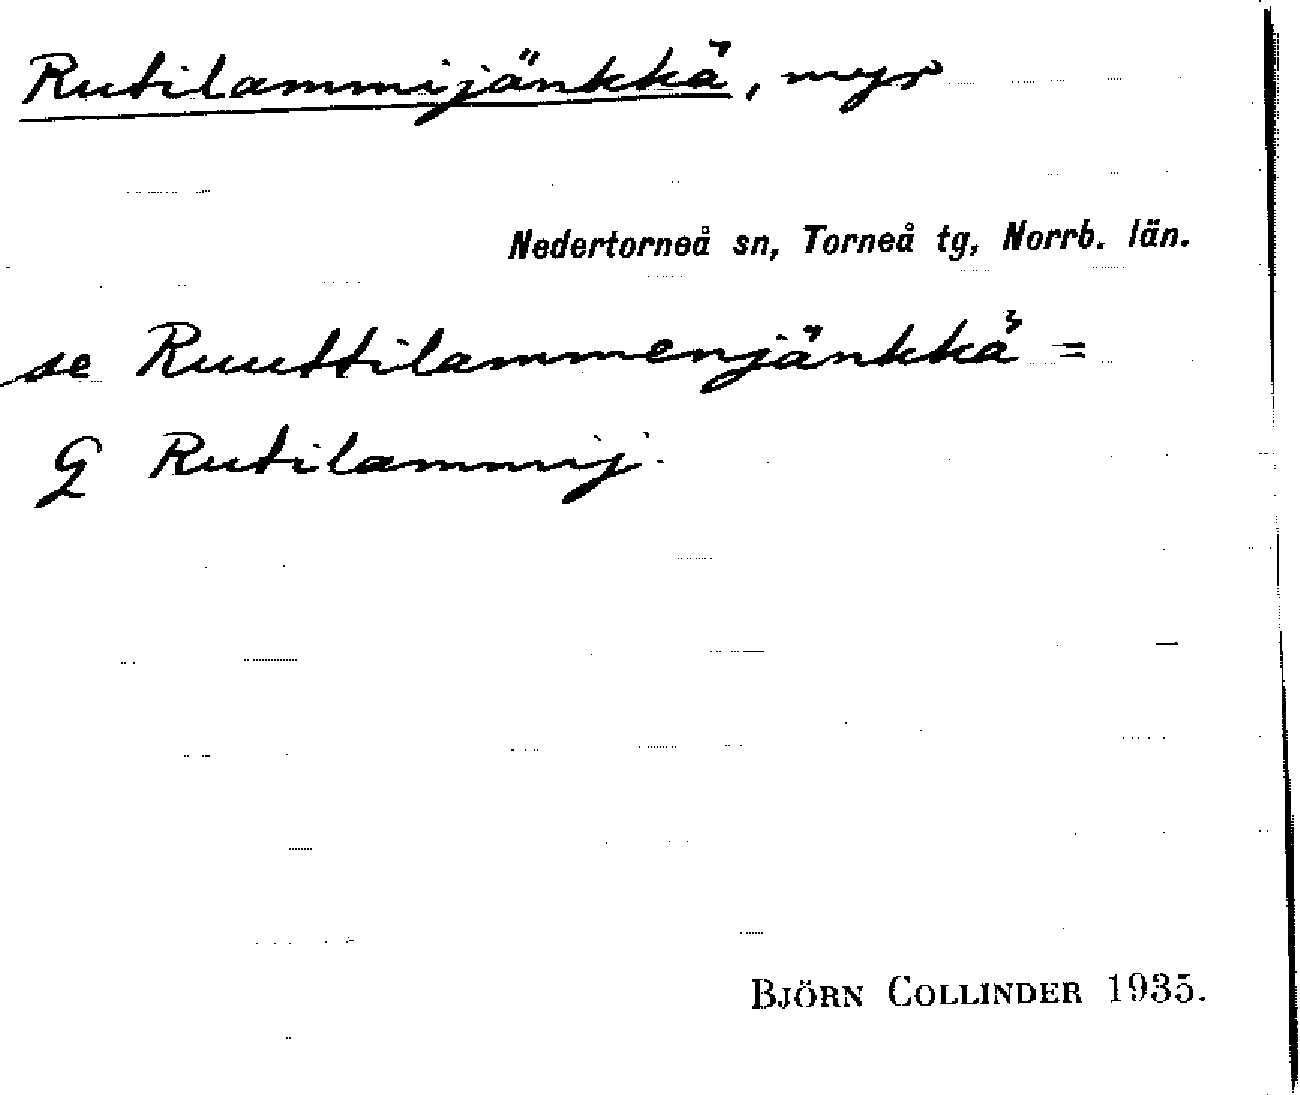 Rutilammijänkkä, myr
Nedertorneå sn, Torneå tg, Norrb. län.
se Ruuttilammenjänkkä =
G Rutilammij.
BJÖRN COLLINDER 1935.